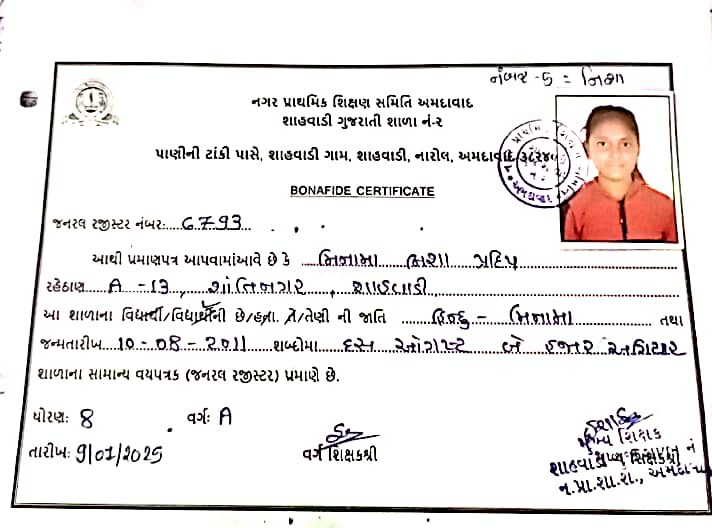 નંબર - 5 = નિશા
નગર પ્રાથમિક શિક્ષણ સમિતિ અમદાવાદ
શાહવાડી ગુજરાતી શાળા નં-૨
પાણીની ટાંકી પાસે, શાહવાડી ગામ, શાહવાડી, નારોલ, અમદાવાદ
BONAFIDE CERTIFICATE
જનરલ રજીસ્ટર નંબર: 6793
આથી પ્રમાણપત્ર આપવામાંઆવે છે કે મિનામા પ્રદિપ
રહેઠાણ A - 13, શાંતિનગર, શાહવાડી
આ શાળાના વિદ્યાર્થી/વિદ્યાર્થીની છે/હતા. તે/તેણી ની જાતિ હિન્દુ - મિનામા તથા
જન્મતારીખ 10-08-2011 શબ્દોમા દસ ઓગસ્ટ બે હજાર અગિયાર
શાળાના સામાન્ય વયપત્રક (જનરલ રજીસ્ટર) પ્રમાણે છે.
ધોરણ: 8 વર્ગ: A
તારીખ: 9/01/2025 વર્ગ શિક્ષકશ્રી
મુખ્ય શિક્ષક
શાહવાડી મુખ્ય શિક્ષકશ્રી નં
ન.પ્રા.શા.શ., અમદાવાદ